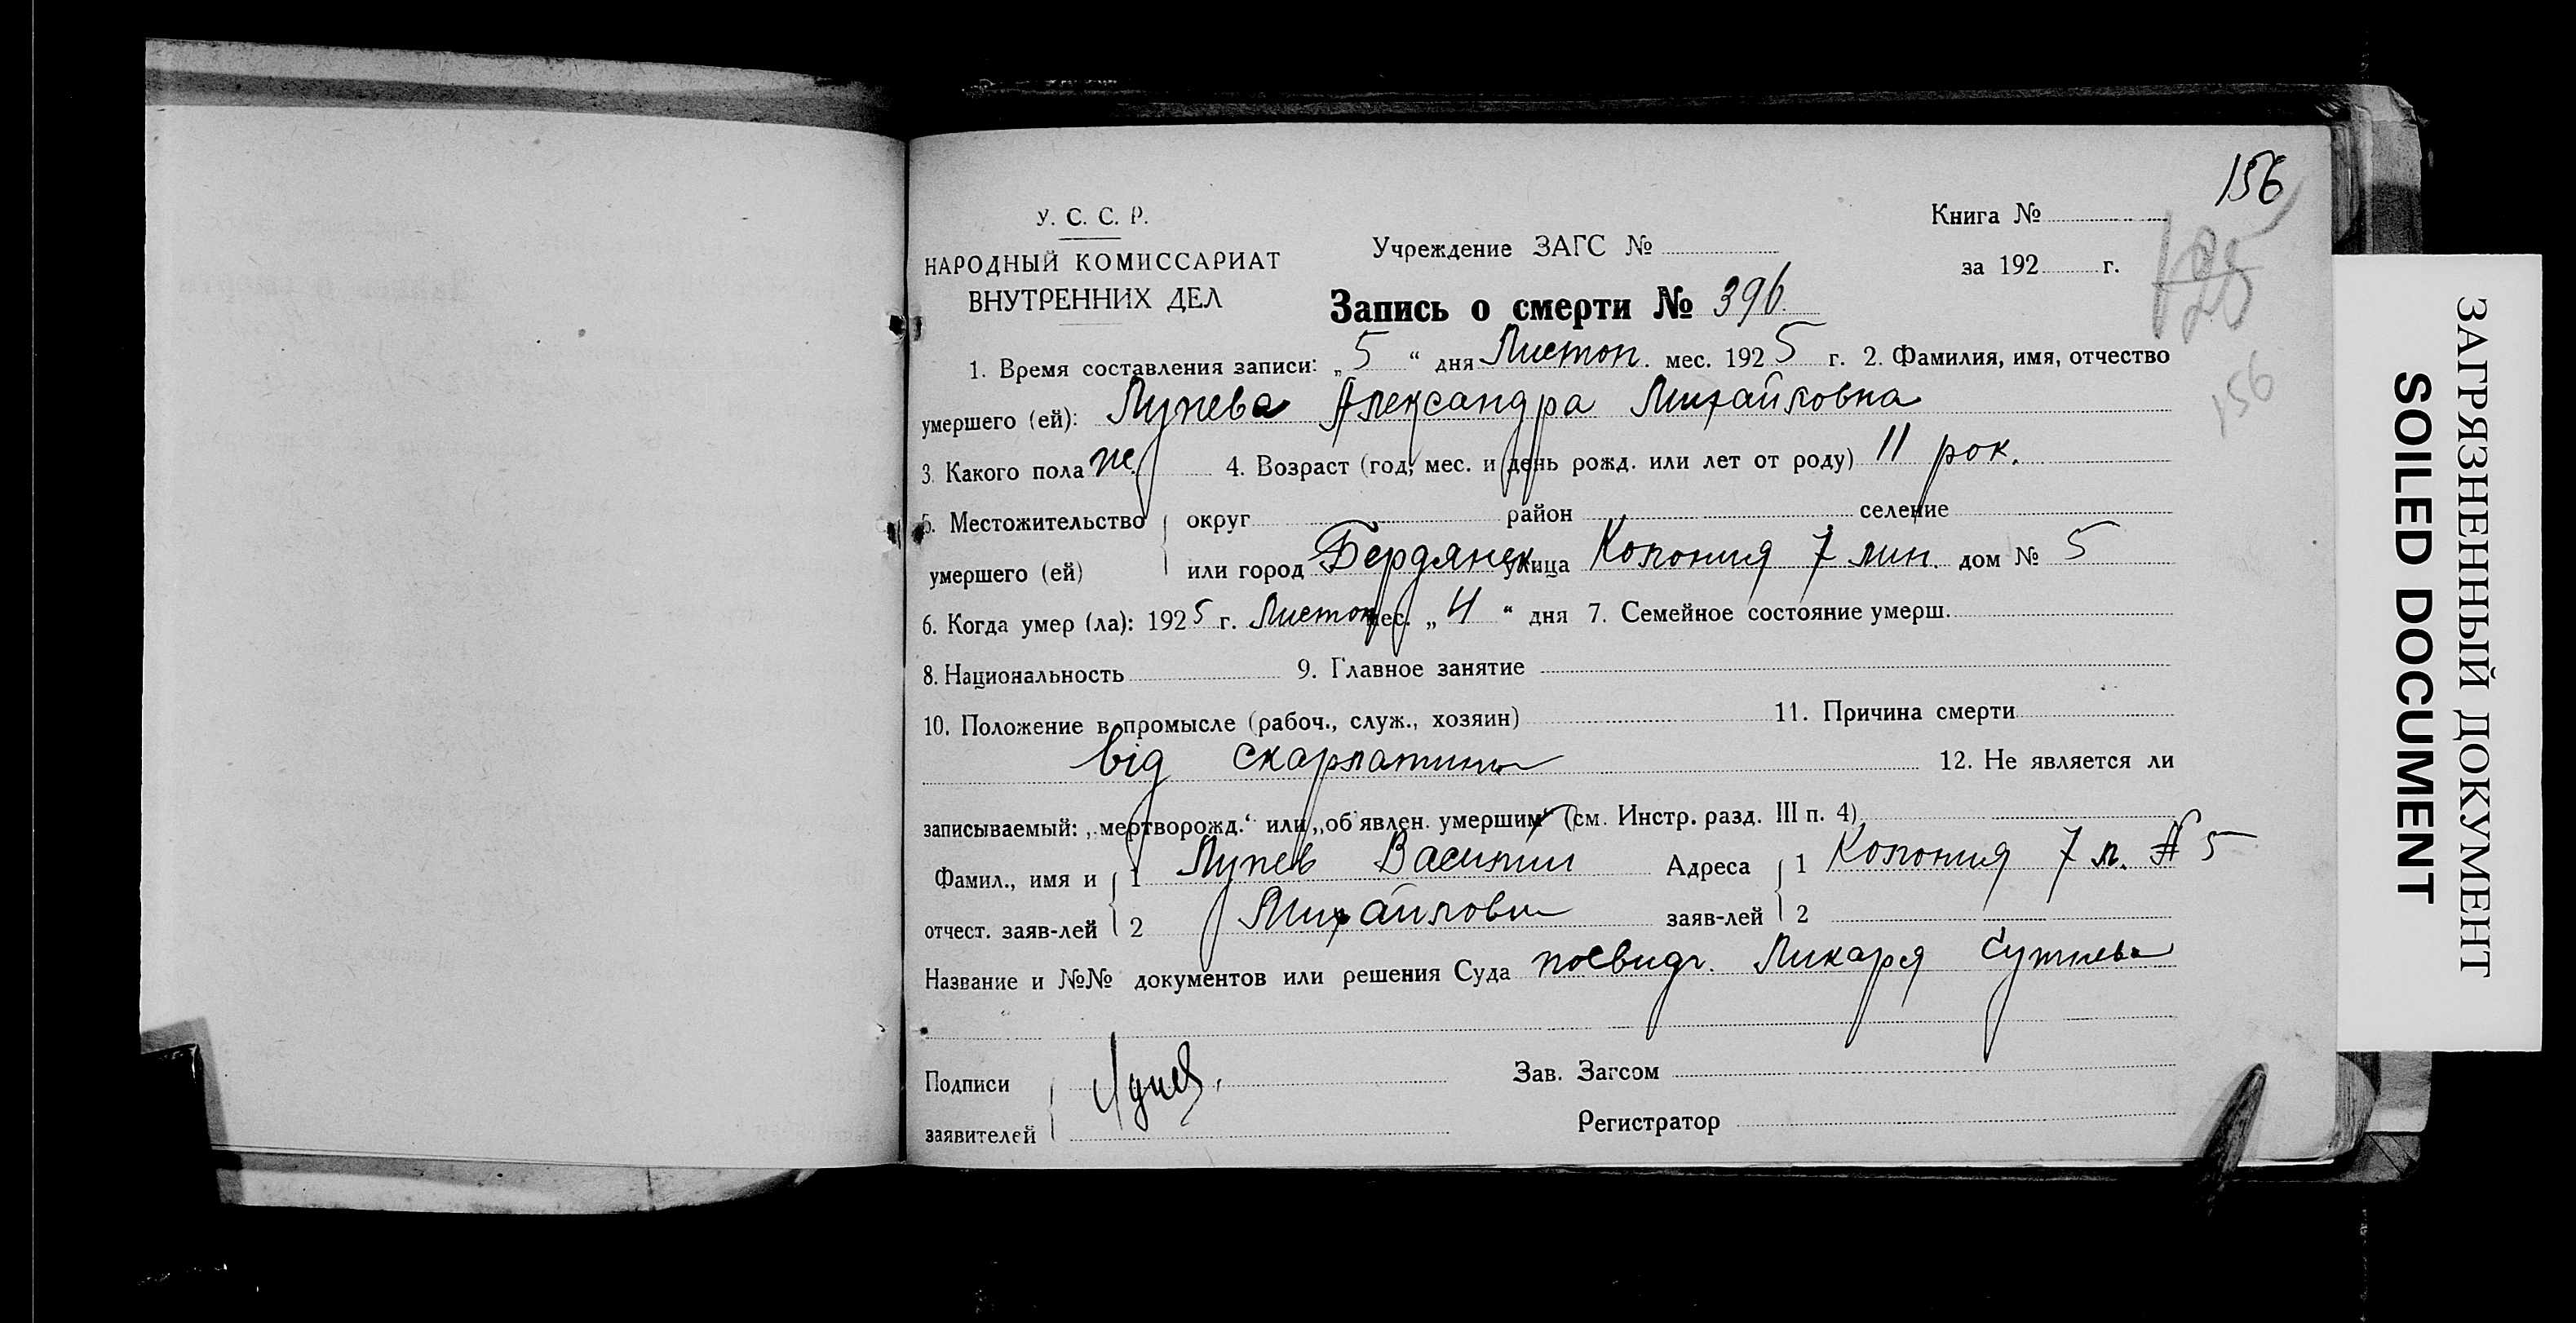 156
У. С. С. Р.
Книга №
125
НАРОДНЫЙ КОМИССАРИАТ
Учреждение ЗАГС №
за 192 г.
ВНУТРЕННИХ ДЕЛ
Запись о смерти № 396.
1. Время составления записи: „5“ дня Листоп. мес. 1925 г. 2. Фамилия, имя, отчество
156
умершего (ей): Лунева Александра Михайловна
3. Какого пола ж. 4. Возраст (год, мес. и день рожд. или лет от роду) 11 рок.
5. Местожительство округ район селение
умершего (ей) или город Бердянск улица Колония 7 лин. дом № 5
6. Когда умер (ла): 1925 г. Листоп мес. „4“ дня 7. Семейное состояние умерш.
8. Национальность 9. Главное занятие
10. Положение в промысле (рабоч., служ., хозяин) 11. Причина смерти
від скарлатини 12. Не является ли
записываемый: „мертворожд.“ или „об'явлен. умершим“ (см. Инстр. разд. III п. 4)
Фамил., имя и 1 Лунев Василий Адреса 1 Колония 7 л. № 5
отчест. заяв-лей 2 Михайлович заяв-лей 2
Название и №№ документов или решения Суда посвидч. Ликаря
Подписи Лунев. Зав. Загсом
заявителей Регистратор
ЗАГРЯЗНЕННЫЙ ДОКУМЕНТ
SOILED DOCUMENT